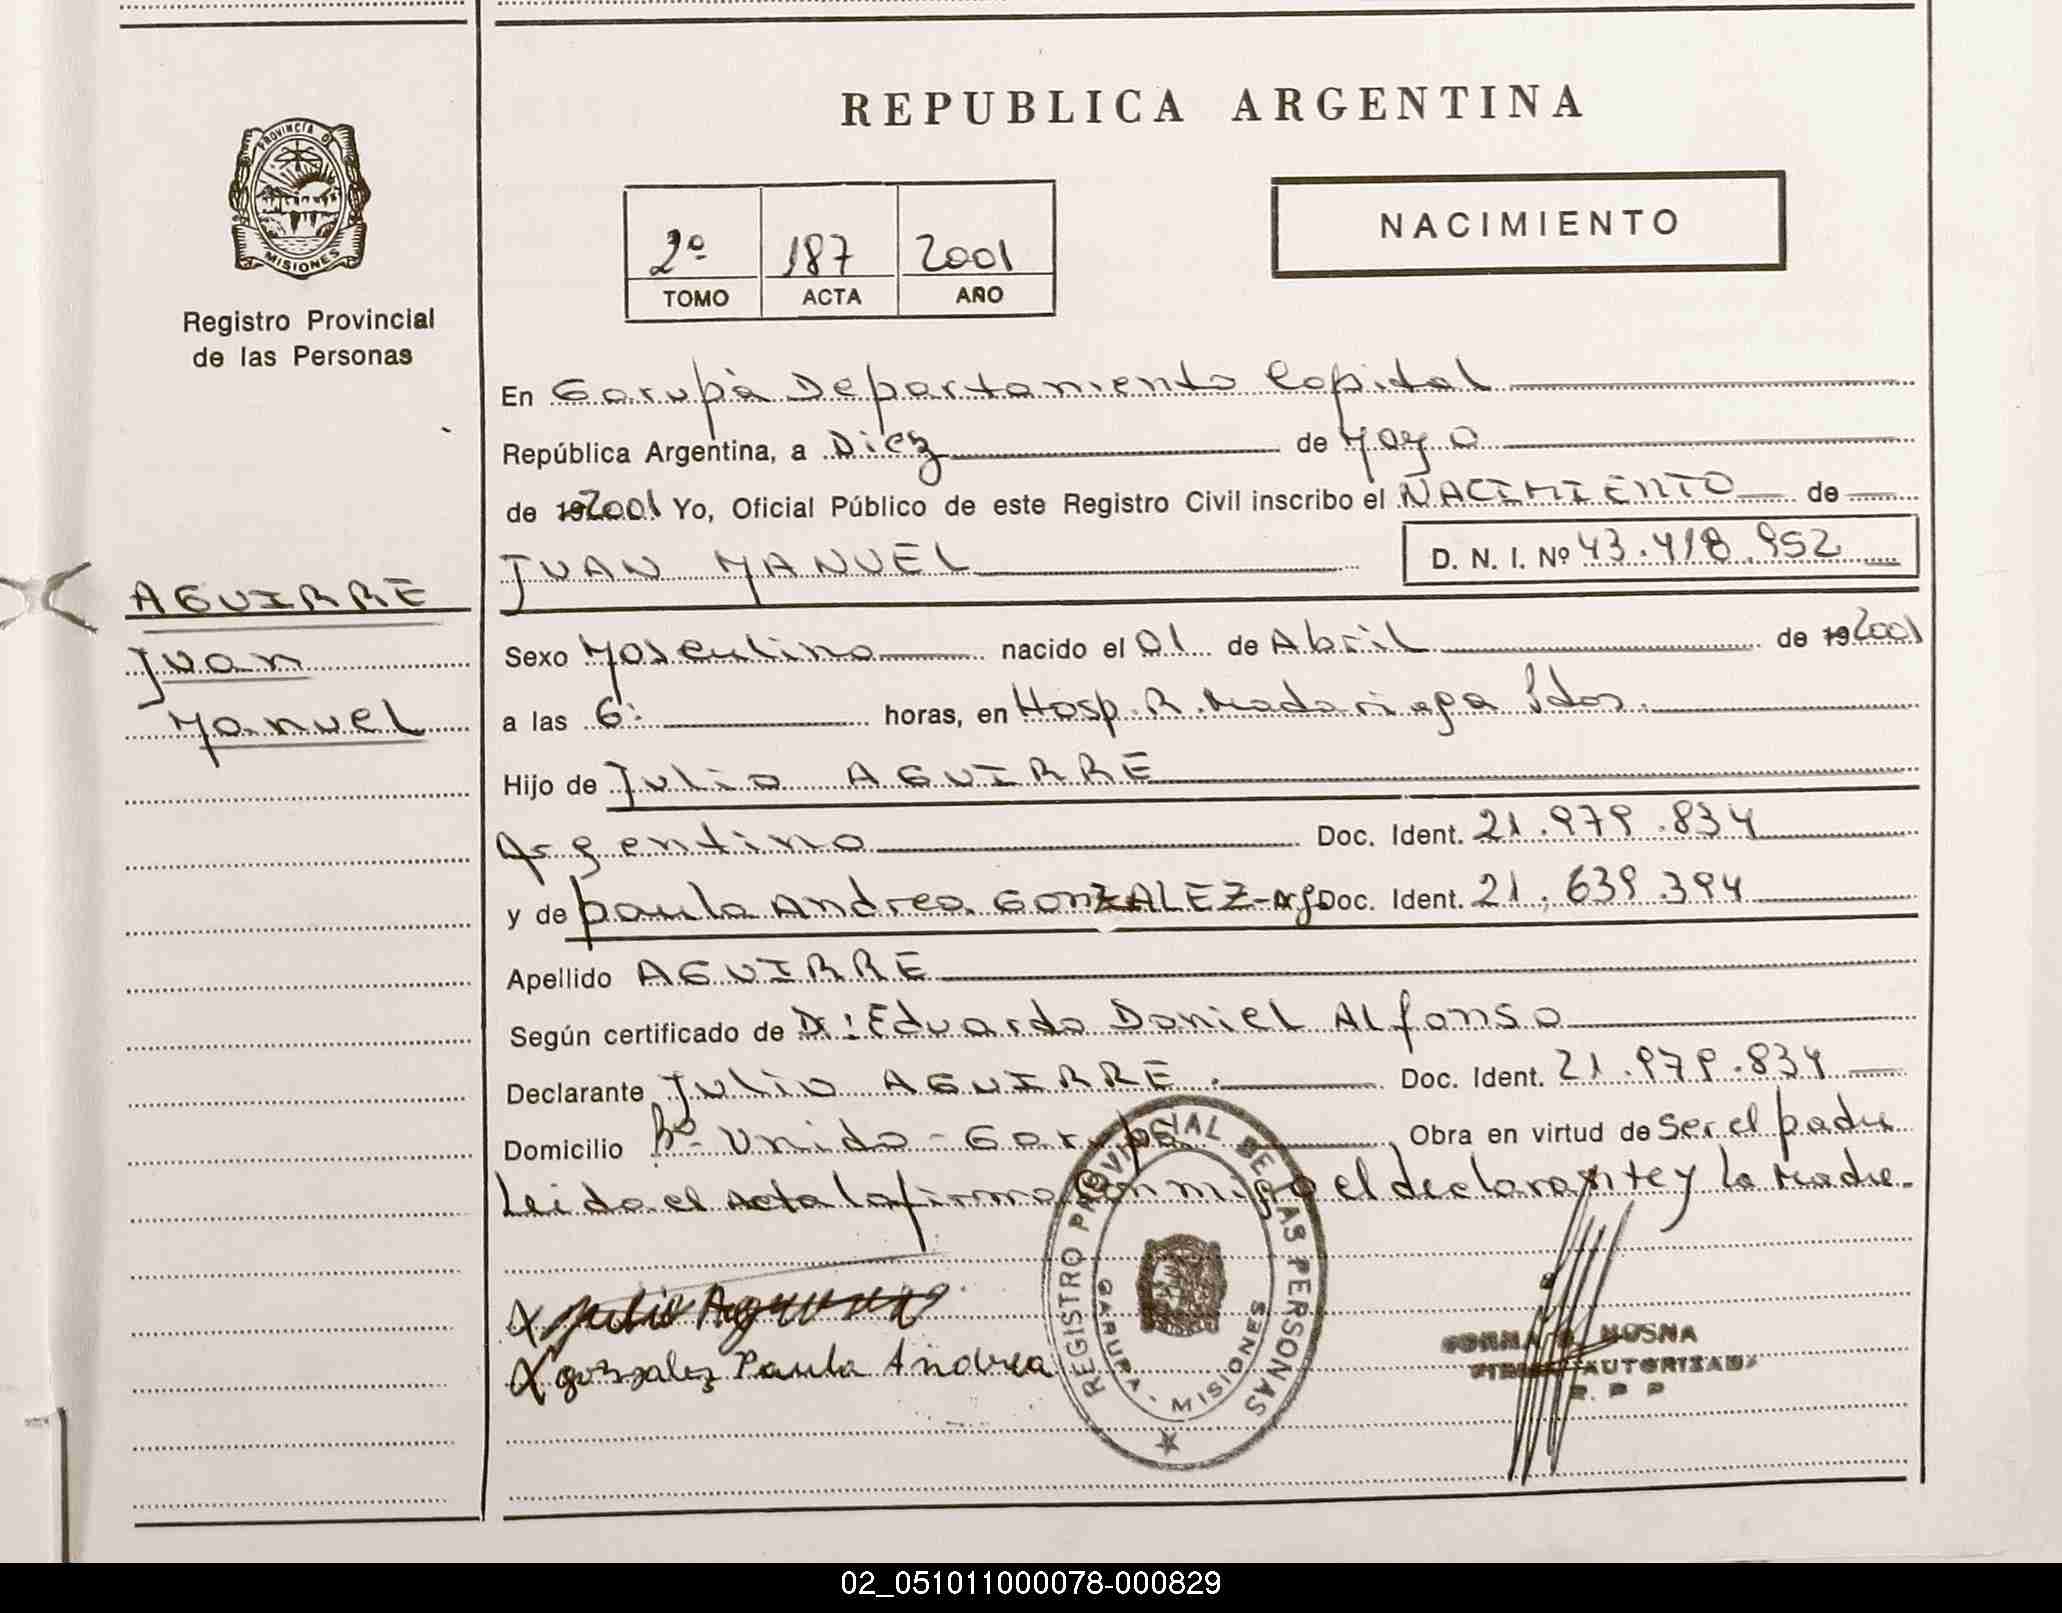 REPUBLICA ARGENTINA
PROVINCIA DE
MISIONES
Registro Provincial
de las Personas
2º 187 2001
TOMO ACTA AÑO
NACIMIENTO
En Garupá Departamento Capital
República Argentina, a Diez de Mayo
de 192001 Yo, Oficial Público de este Registro Civil inscribo el NACIMIENTO de
JUAN MANUEL D. N. I. Nº 43.418.952
AGUIRRE
Juan
Manuel
Sexo Masculino nacido el 01 de Abril de 192001
a las 6: horas, en Hosp. R. Madariaga Pdas.
Hijo de Julio AGUIRRE
Argentino Doc. Ident. 21.979.834
y de Paula Andrea GONZALEZ-Arg Doc. Ident. 21.639.394
Apellido AGUIRRE
Según certificado de Dr: Eduardo Daniel Alfonso
Declarante Julio AGUIRRE. Doc. Ident. 21.979.834
Domicilio Bº Unido - Garupá Obra en virtud de Ser el padre
Leida el Acta la firma conmigo el declarante y la Madre.
X Julio Aguirre
X gonzalez Paula Andrea
REGISTRO PROVINCIAL DE LAS PERSONAS
GARUPA - MISIONES
MOSNA
AUTORIZADA
R. P. P
02_051011000078-000829